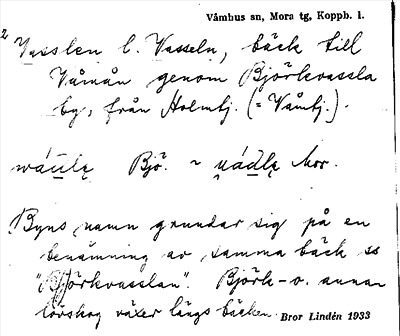 Våmhus sn, Mora tg, Koppb. l.
2
Vasslen l. Vasseln, bäck till
Våmån genom Björkvassla
by, från Holmtj. (= Våmtj.).
Bjö. ~ Mor.
Byns namn grundar sig på en
benämning av samma bäck ss
"Björkvasslan". Björk- o. annan
lövskog växer längs bäcken. Bror Lindén 1933